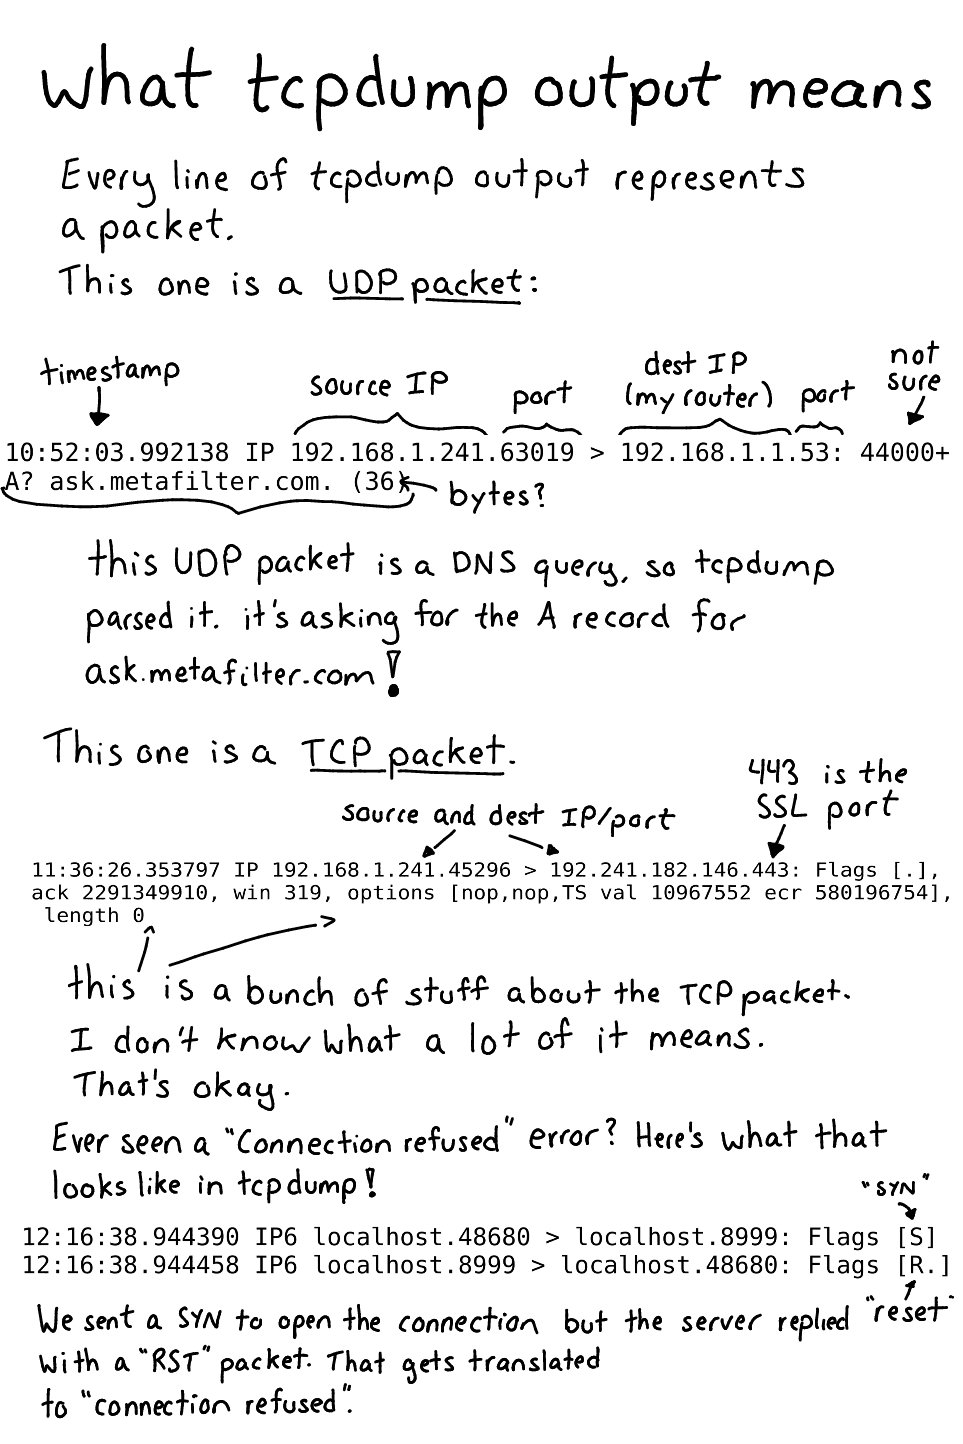 what tcpdump output means
Every line of tcpdump output represents
a packet.
This one is a UDP packet:
timestamp
source IP
port
dest IP
(my router)
port
not
sure
10:52:03.992138 IP 192.168.1.241.63019 > 192.168.1.1.53: 44000+
A? ask.metafilter.com. (36)
bytes?
this UDP packet is a DNS query, so tcpdump
parsed it. it's asking for the A record for
ask.metafilter.com!
This one is a TCP packet.
443 is the
SSL port
source and dest IP/port
11:36:26.353797 IP 192.168.1.241.45296 > 192.241.182.146.443: Flags [.],
ack 2291349910, win 319, options [nop,nop,TS val 10967552 ecr 580196754],
length 0
this is a bunch of stuff about the TCP packet.
I don't know what a lot of it means.
That's okay.
Ever seen a "Connection refused" error? Here's what that
looks like in tcpdump!
"SYN"
12:16:38.944390 IP6 localhost.48680 > localhost.8999: Flags [S]
12:16:38.944458 IP6 localhost.8999 > localhost.48680: Flags [R.]
"reset"
We sent a SYN to open the connection but the server replied
with a "RST" packet. That gets translated
to "connection refused".